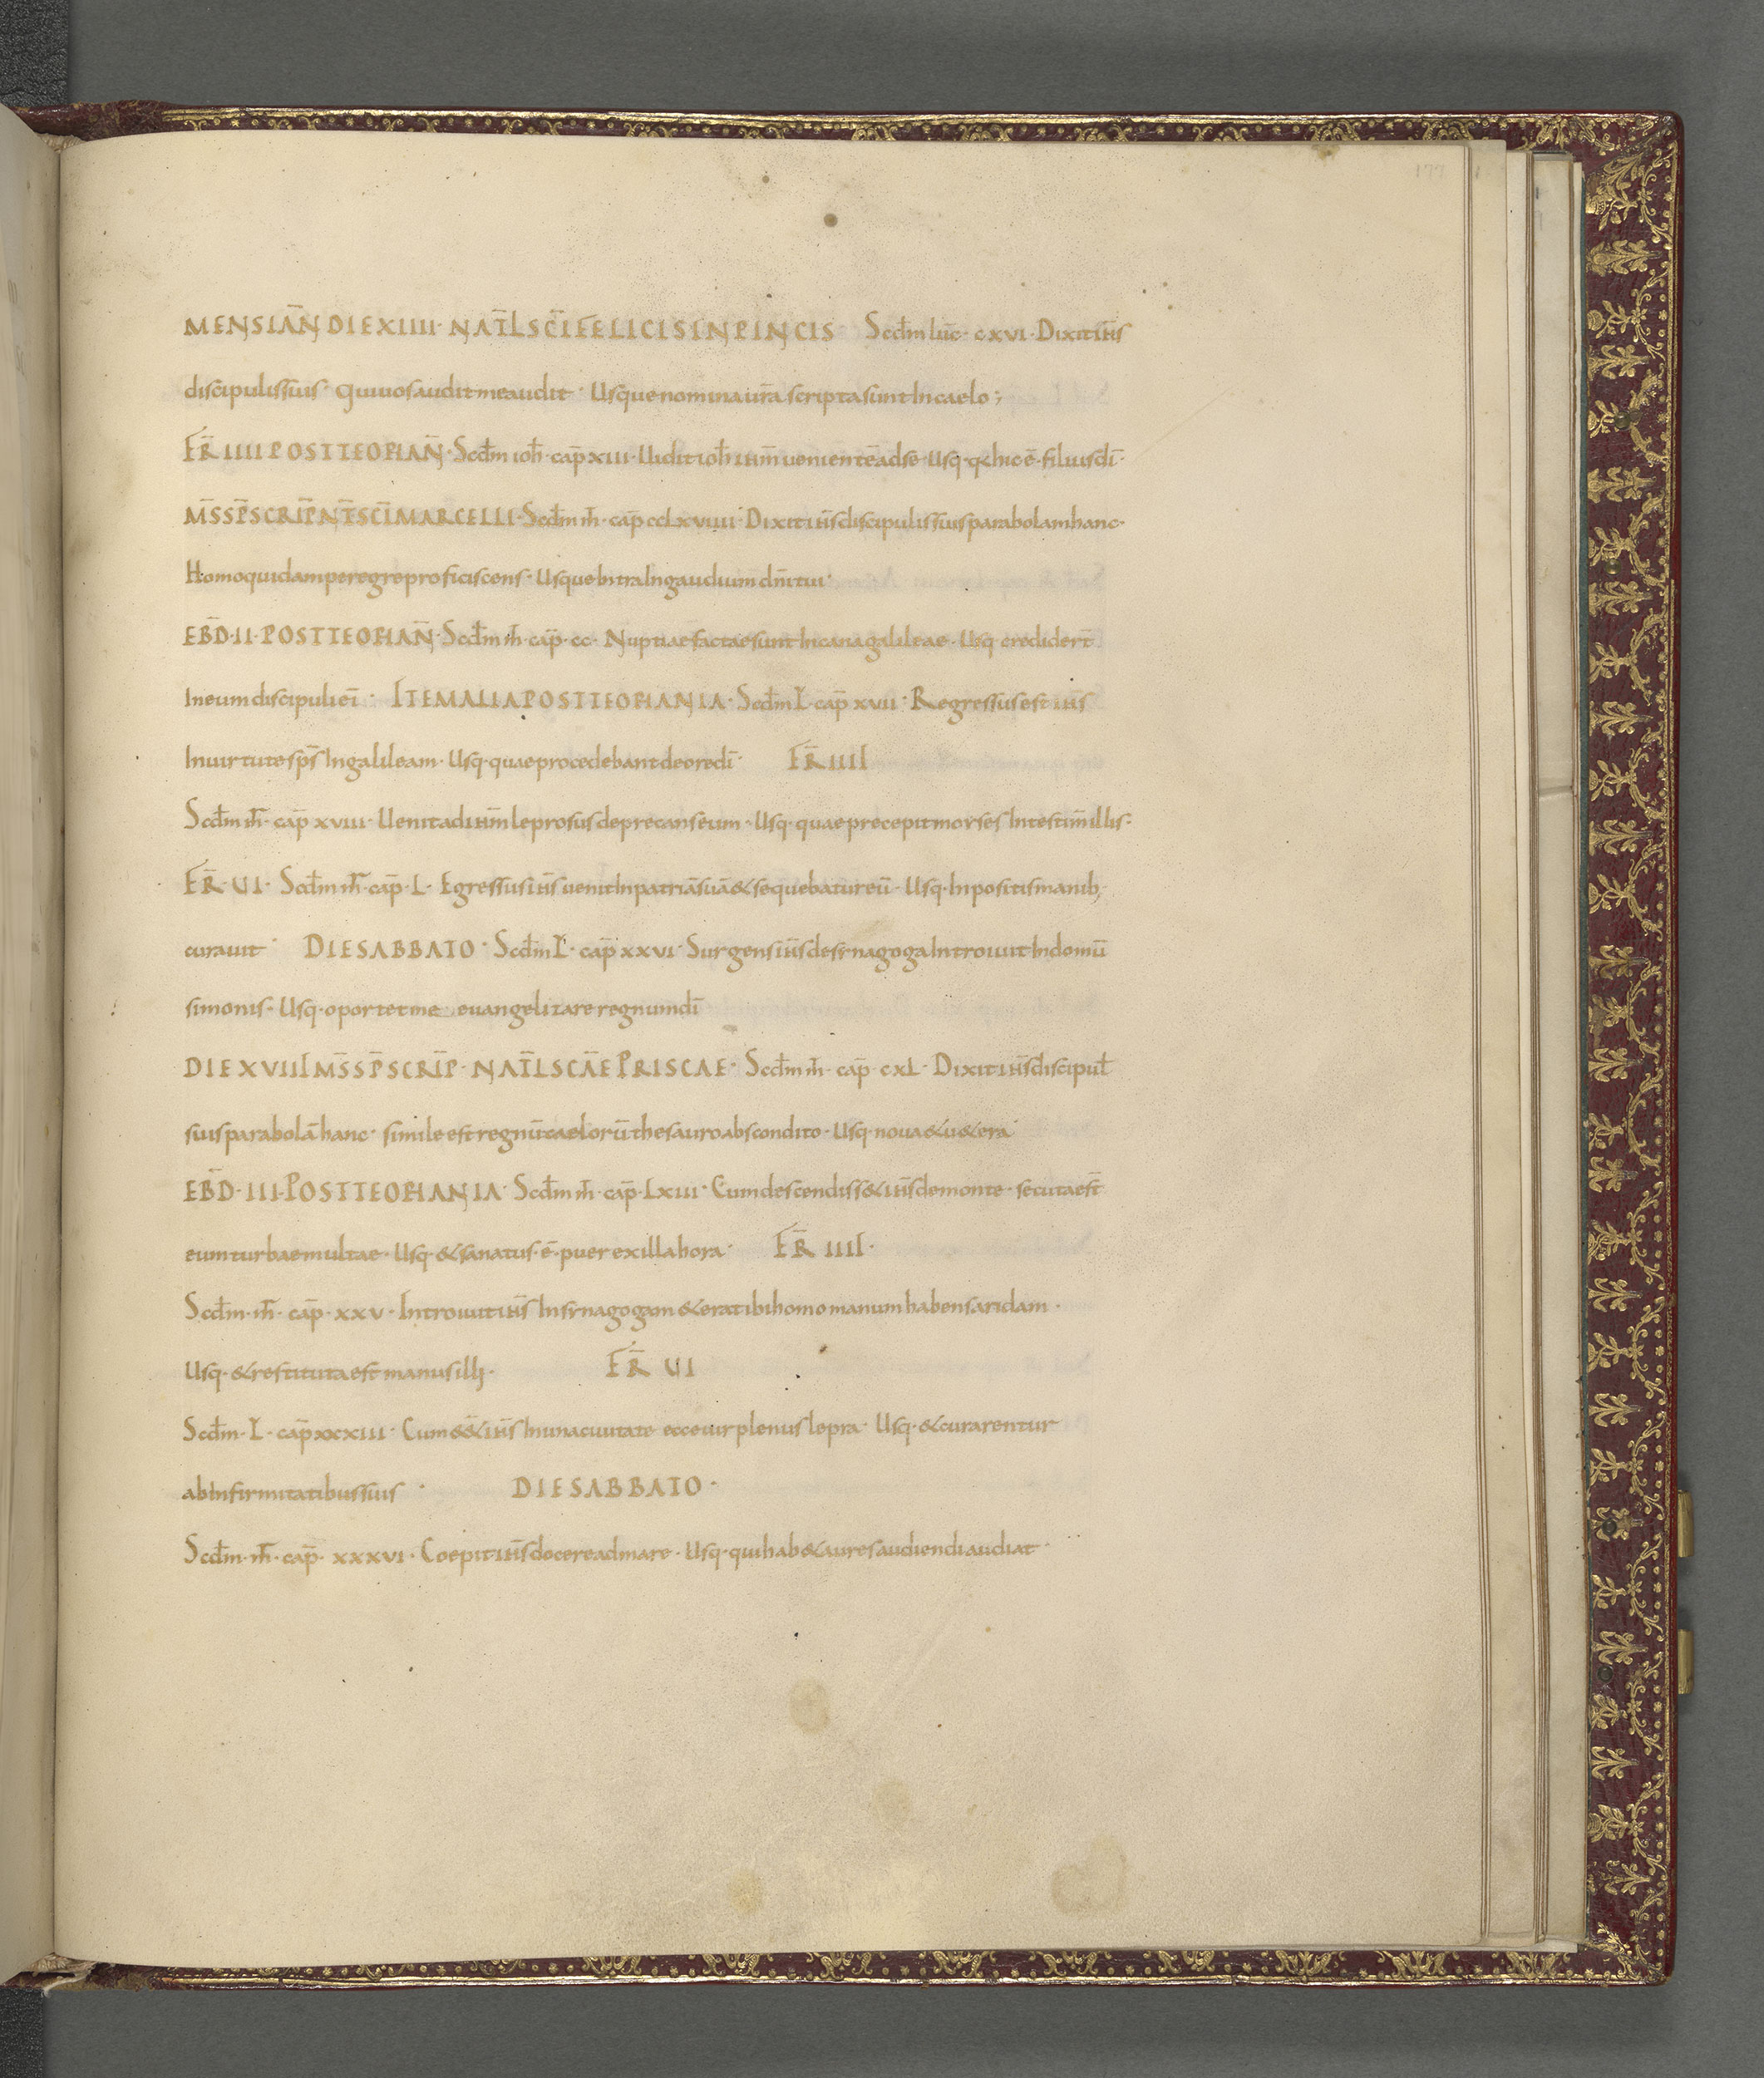 177
MENSIAN̄ DIE XIIII · NAT̄L SC̄I FELICIS IN PINCIS Scd̄m luc̄ · cxvi · Dixit ih̄s
discipulis suis · Qui uos audit me audit · Usque nomina ur̄a scripta sunt In caelo ;
FR̄ IIII POST TEOPHAN̄ · Scd̄m ioh̄ · cap̄ xiii · Uidit ioh̄ ih̄m uenientē ad se · Usq · q̶ hic ē · filius dī ·
M̄S S P̄ SCRIP̄ NT̄ SC̄I MARCELLI · Scd̄m m̄ · cap̄ cclxviiii · Dixit ih̄s discipulis suis parabolam hanc ·
Homo quidam peregre proficiscens · Usque Intra In gaudium dn̄i tui ·
EB̄D · II · POST TEOPHAN̄ · Scd̄m m̄ · cap̄ · cc · Nuptiae factae sunt In cana galileae · Usq credider̄t
In eum discipuli eī · ITEM ALIA POST TEOPHANIA · Scd̄m L̄ · cap̄ xvii · Regressus est ih̄s
In uirtute sp̄s In galileam · Usq · quae procedebant de ore dī · FR̄ IIII
Scd̄m m̄ · cap̄ xviii · Uenit ad ih̄m leprosus deprecans eum · Usq · quae precepit moyses In testim̄ illis ·
FR̄ · UI · Scd̄m m̄ · cap̄ · L · Egressus ih̄s uenit In patriā suā & sequebatur eū · Usq · Inpositis manib;
curauit · DIE SABBATO · Scd̄m L̄ · cap̄ xxvi · Surgens ih̄s de synagoga Introiuit In domū
simonis · Usq · oportet me euangelizare regnum dī
DIE XVIII M̄S S P̄ SCRIP̄ · NAT̄L SCĀE PRISCAE · Scd̄m m̄ · cap̄ · cxL · Dixit ih̄s discipul̄
suis parabolā hanc · simile est regnū caelorū thesauro abscondito · Usq · noua & u&era
EB̄D · III · POST TEOPHANIA · Scd̄m m̄ · cap̄ · Lxiii · Cum descendiss& ih̄s de monte · secuta es̄t
eum turbae multae · Usq · & sanatus · ē · puer ex illa hora · FR̄ IIII ·
Scd̄m · m̄ · cap̄ · xxv · Introiuit ih̄s In synagogam & erat ibi homo manum habens aridam ·
Usq · & restituta est manus illi · FR̄ UI
Scd̄m · L̄ · cap̄ xxxiii · Cum ess& ih̄s In una ciuitate ecce uir plenus lepra · Usq · & curarentur
ab Infirmitatibus suis · DIE SABBATO ·
Scd̄m · m̄ · cap̄ · xxxvi · Coepit ih̄s docere ad mare · Usq · qui hab& aures audiendi audiat ·